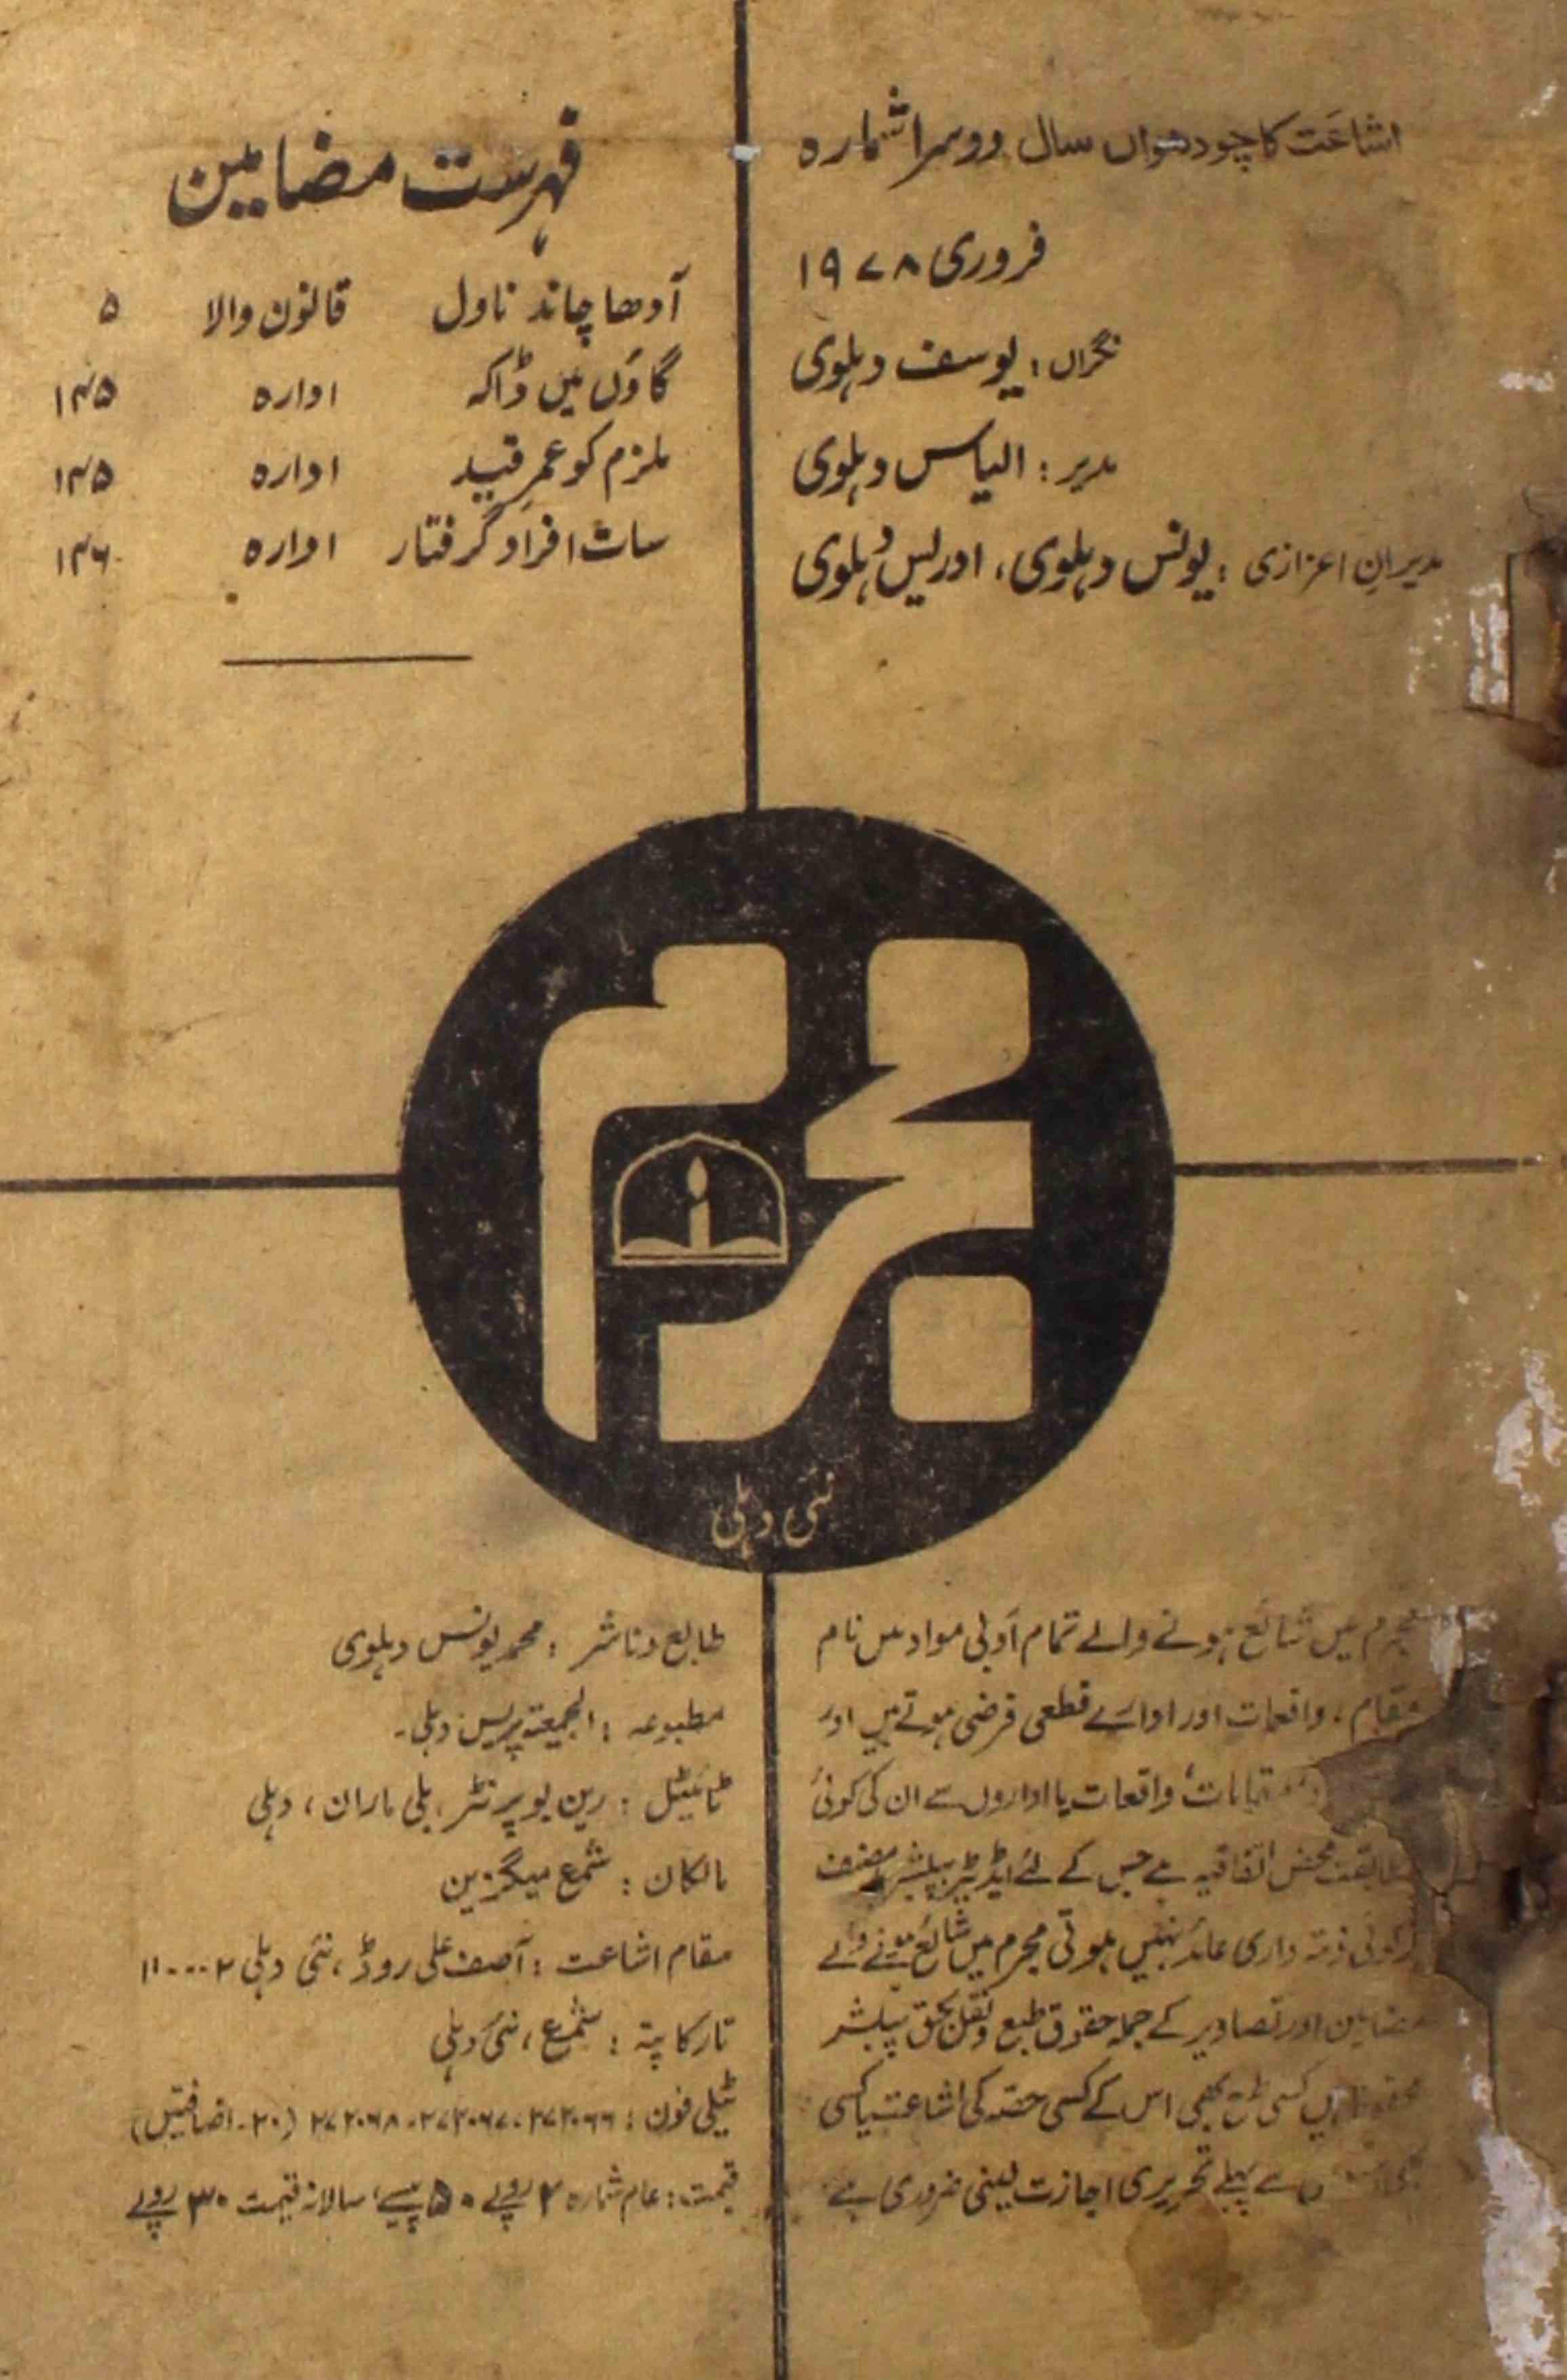 اشاعت کا چودھواں سال دوسرا شمارہ
فروری ۱۹۷۸
نگراں : یوسف دہلوی
مدیر : الیاس دہلوی
مدیرانِ اعزازی : یونس دہلوی، ادریس دہلوی
فہرست مضامین
آدھا چاند ناول قانون والا ۵
گاؤں میں ڈاکہ ادارہ ۱۴۵
ملزم کو عمر قید ادارہ ۱۴۵
سات افراد گرفتار ادارہ ۱۴۶
مجرم
نئی دہلی
مجرم میں شائع ہونے والے تمام ادبی مواد میں نام
مقام، واقعات اور ادارے قطعی فرضی ہوتے ہیں اور
واقعات یا اداروں سے ان کی کوئی
محض اتفاقیہ ہے جس کے لئے ایڈیٹر پبلشر مصنف
ذمہ داری عائد نہیں ہوتی مجرم میں شائع ہونے والے
مضامین اور تصاویر کے جملہ حقوق طبع و نقل بحق پبلشر
کسی بھی اس کے کسی حصّہ کی اشاعت یا کسی
سے پہلے تحریری اجازت لینی ضروری ہے
طابع و ناشر : محمد یونس دہلوی
مطبوعہ : الجمعیۃ پریس دہلی۔
ٹائیٹل : رین بو پرنٹر، بلی ماران، دہلی
مالکان : شمع میگزین
مقام اشاعت : آصف علی روڈ، نئی دہلی ۱۱۰۰۰۲
تار کا پتہ : شمع، نئی دہلی
ٹیلی فون : ۲۷۲۰۶۶۔۲۷۲۰۶۷۔۲۷۲۰۶۸ (۲۰۔اضافتیں)
قیمت : عام شمارہ ۲ روپے ۵۰ پیسے، سالانہ قیمت ۳۰ روپے